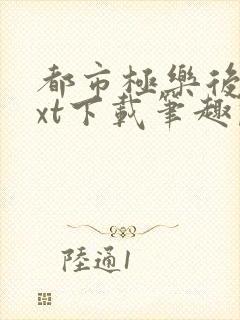 都市極樂後
xt下載筆趣
陸通1